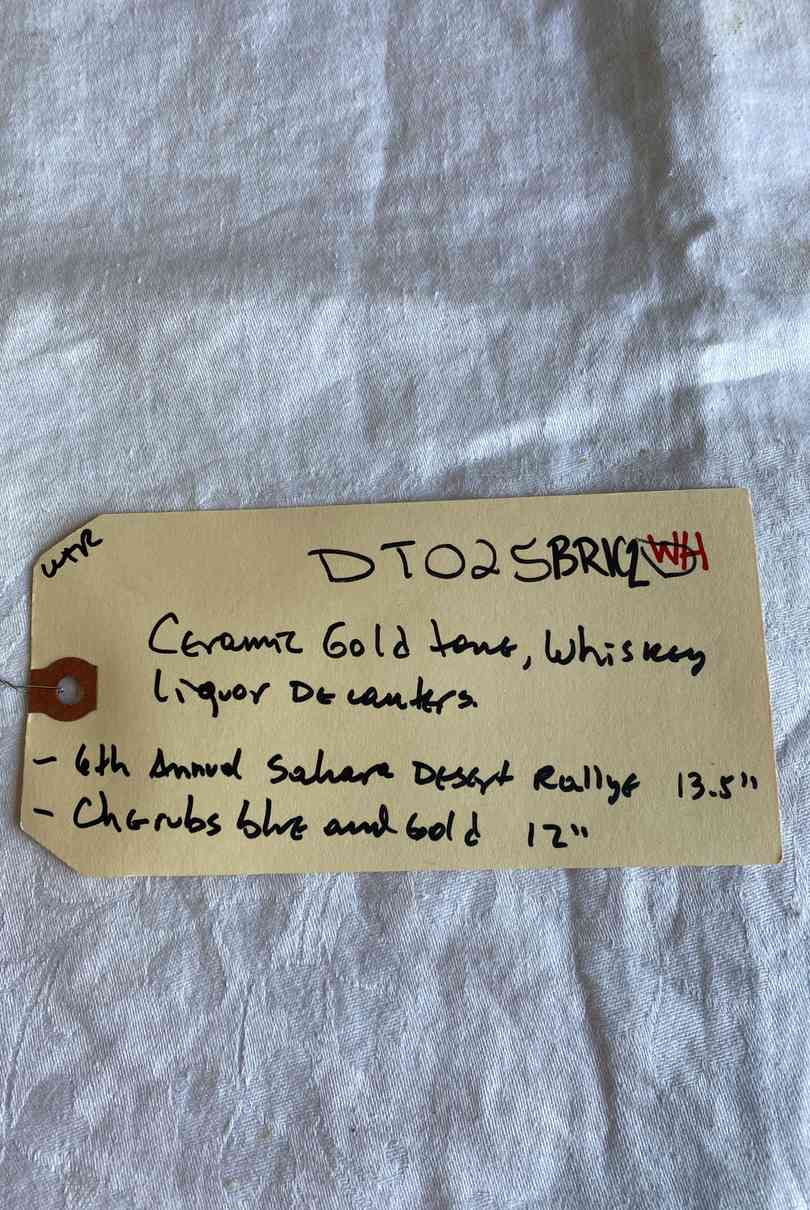 WTR
DT025BRK2WH
Ceramic Gold tone, Whiskey
liquor Decanters.
- 6th Annual Sahara Desert Rallye 13.5"
- Cherubs blue and Gold 12"